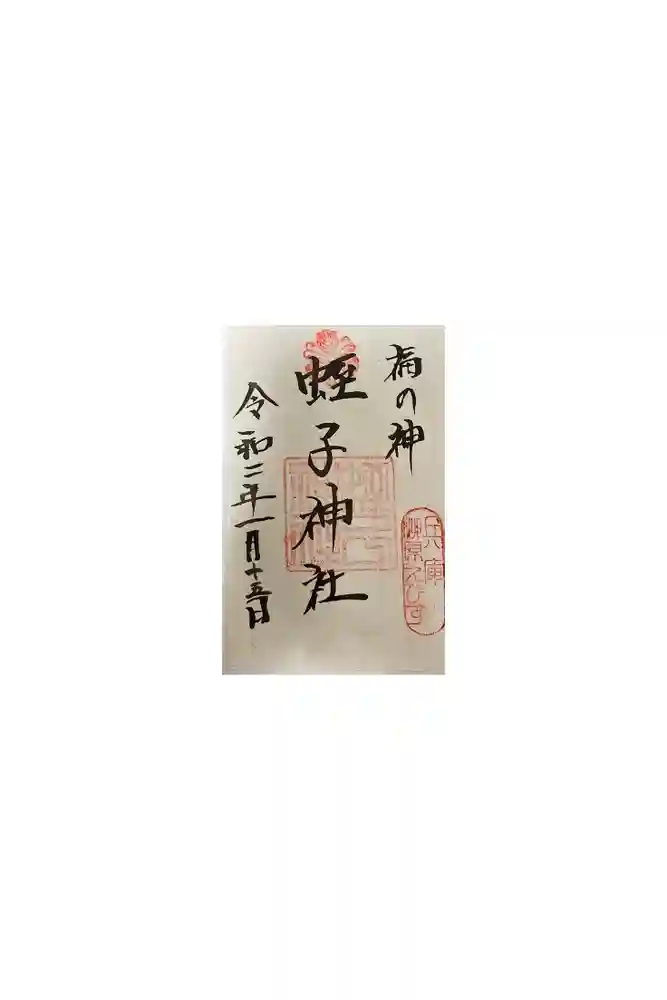 福の神
兵庫
柳原えびす
蛭子神社
令和二年一月十五日